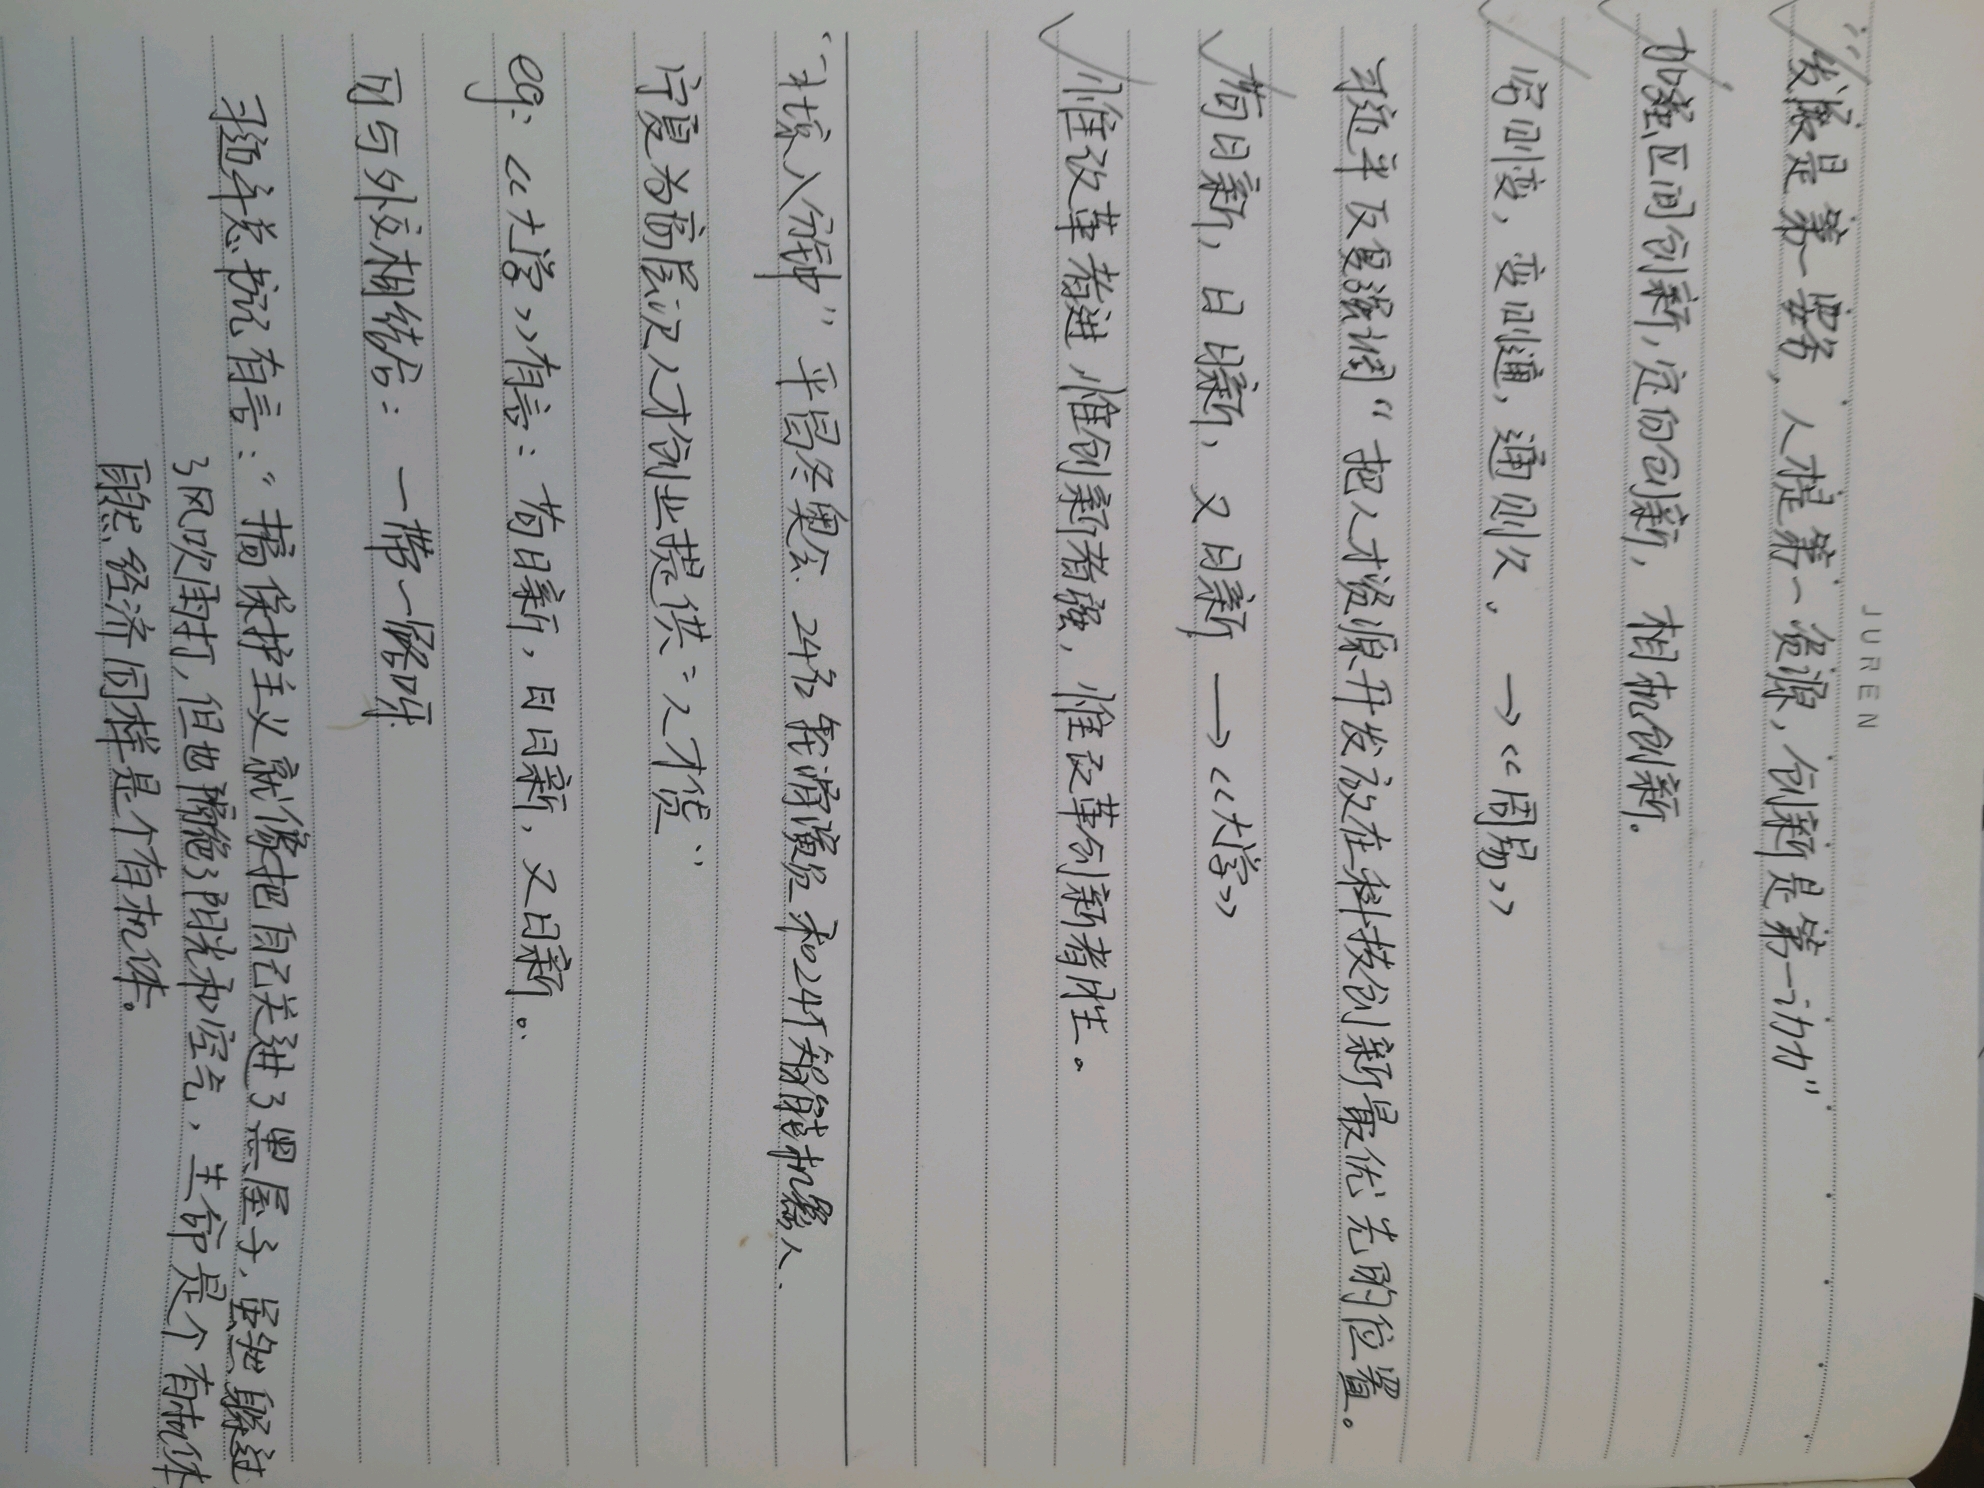 JUREN
"发展是第一要务，人才是第一资源，创新是第一动力"
加强区间创新，定向创新，相机创新.
穷则变，变则通，通则久。→《周易》
习近平反复强调"把人才资源开发放在科技创新最优先的位置。
苟日新，日日新，又日新→《大学》
惟改革者进，惟创新者强，惟改革创新者胜。
"北京八分钟"平昌冬奥会 24名轮滑演员和24个智能机器人.
宁夏为高层次人才创业提供"人才贷"
eg:《大学》有言：苟日新，日日新，又日新。
可与外交相结合：一带一路
习近平总书记有言："搞保护主义就像把自己关进了黑屋子，虽然躲过
了风吹雨打，但也隔绝了阳光和空气，生命是个有机体
自然经济同样是个有机体。